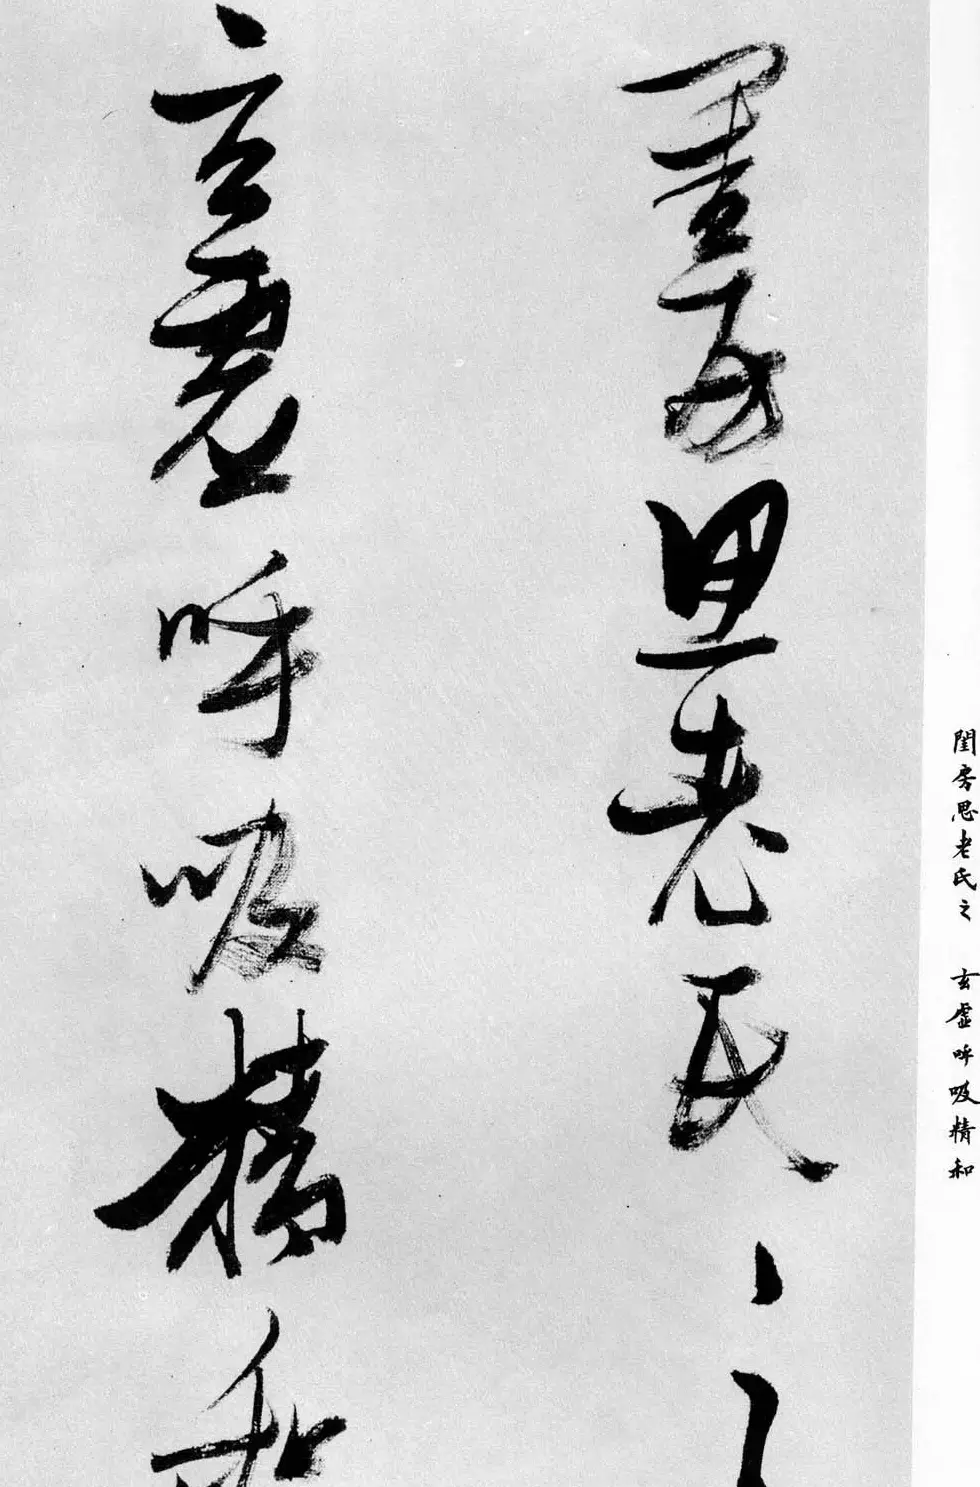 閨房思老氏之
玄虛呼吸精和
閨房思老氏之 玄虛呼吸精和